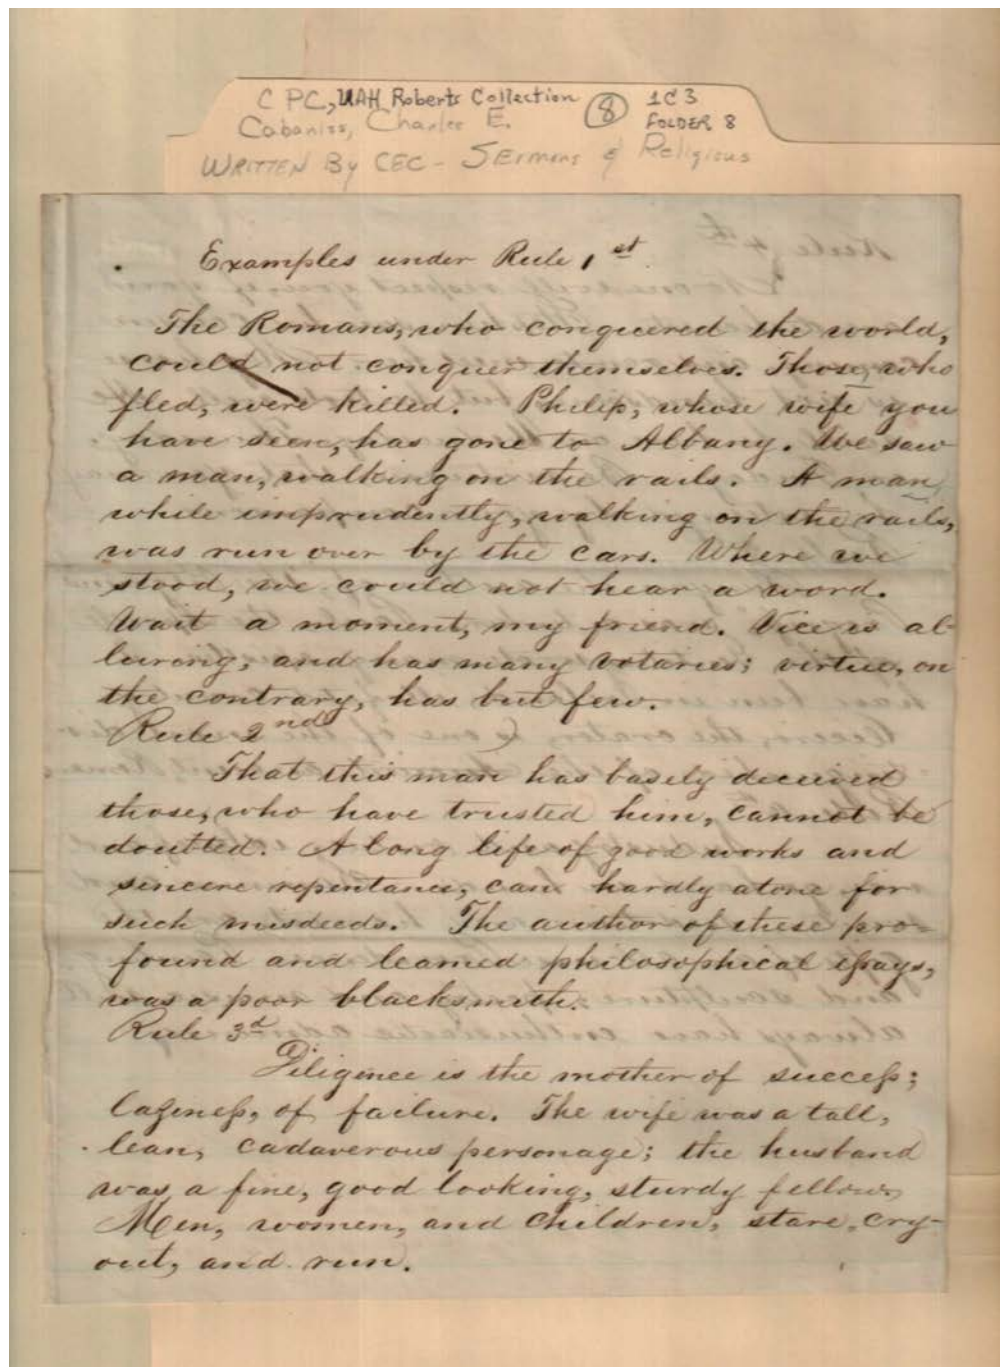 C PC, UAH Roberts Collection (8) 1C3
Cabaniss, Charles E. FOLDER 8
WRITTEN By CEC - SErmons & Religious
Examples under Rule 1st.
The Romans, who conquered the world,
could not conquer themselves. Those, who
fled, were killed. Philip, whose wife you
have seen, has gone to Albany. We saw
a man, walking on the rails. A man,
while imprudently, walking on the rails,
was run over by the cars. Where we
stood, we could not hear a word.
Wait a moment, my friend. Vice is al-
luring, and has many votaries; virtue, on
the contrary, has but few.
Rule 2nd
That this man has basely deceived
those, who have trusted him, cannot be
doubted. A long life of good works and
sincere repentance, can hardly atone for
such misdeeds. The author of these pro-
found and learned philosophical essays,
was a poor blacksmith.
Rule 3d
Diligence is the mother of success;
laziness, of failure. The wife was a tall,
lean, cadaverous personage; the husband
was a fine, good looking, sturdy fellow.
Men, women, and children, stare, cry-
out, and run.